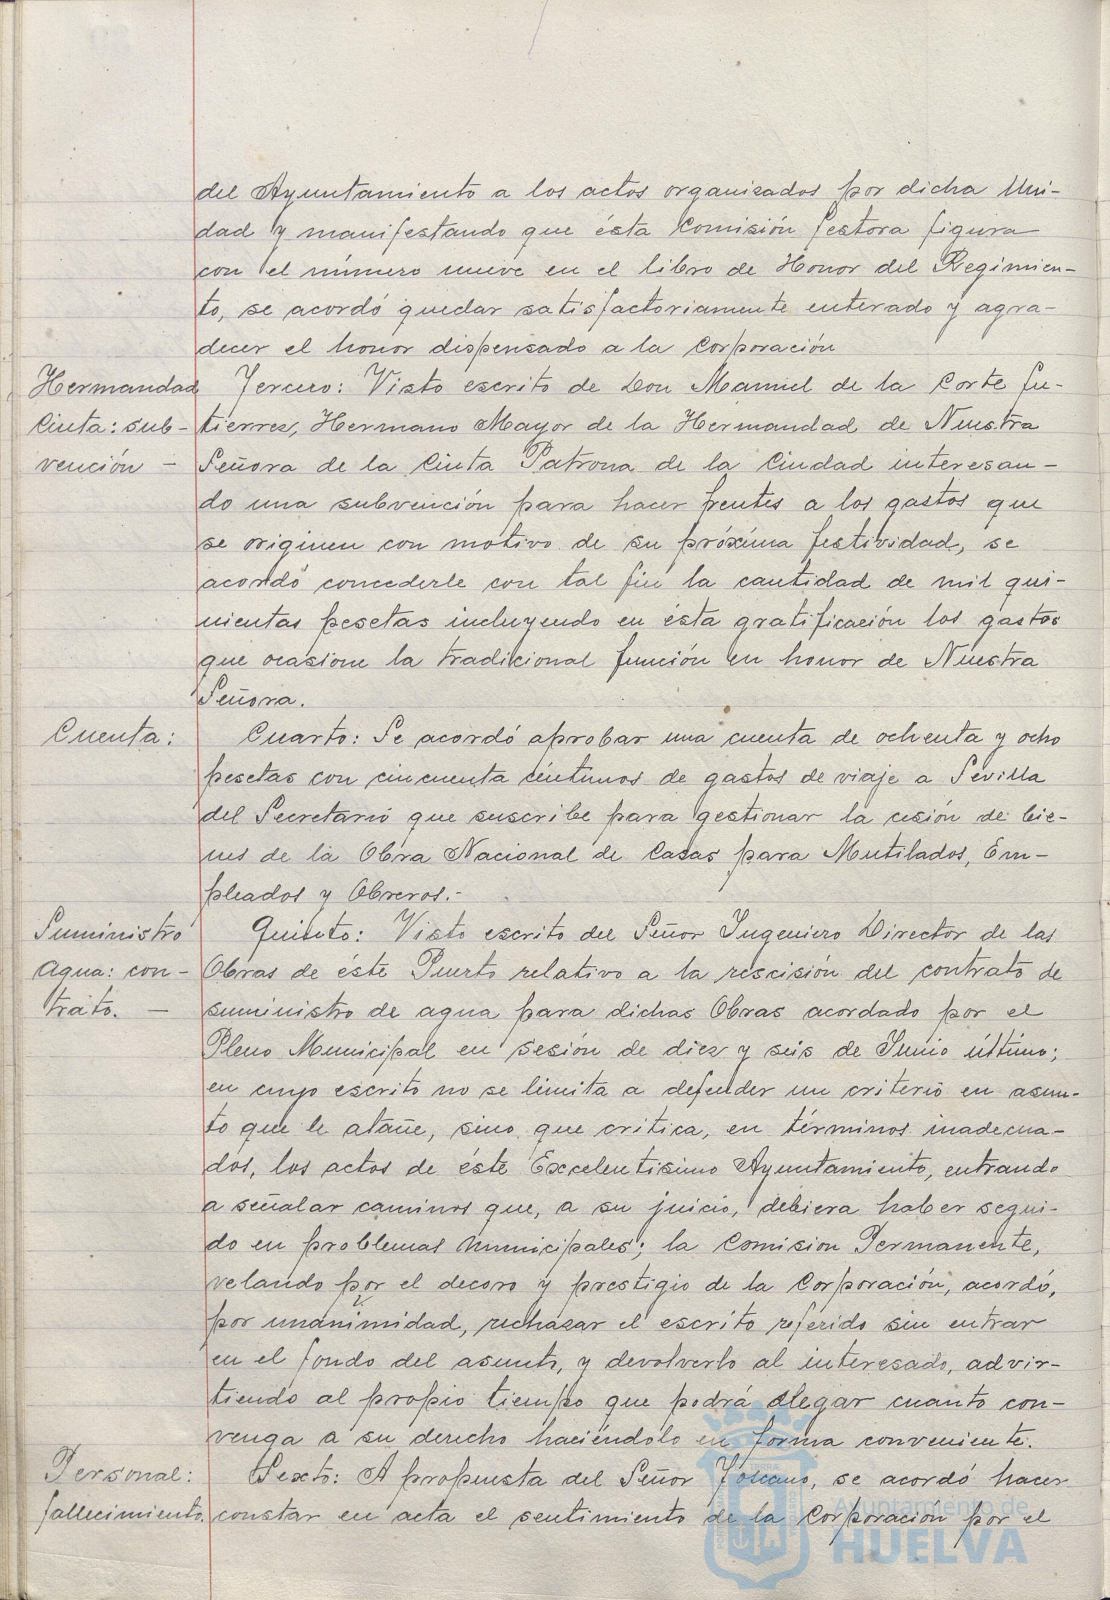 del Ayuntamiento a los actos organizados por dicha Uni-
dad y manifestando que ésta Comisión Gestora figura
con el número nueve en el libro de Honor del Regimien-
to, se acordó quedar satisfactoriamente enterado y agra-
decer el honor dispensado a la Corporación
Hermandad
Cinta: sub-
vención -
Tercero: Visto escrito de Don Manuel de la Corte Gu-
tierrez, Hermano Mayor de la Hermandad de Nuestra
Señora de la Cinta Patrona de la Ciudad interesan-
do una subvención para hacer frentes a los gastos que
se originen con motivo de su próxima festividad, se
acordó concederle con tal fin la cantidad de mil qui-
nientas pesetas incluyendo en ésta gratificación los gastos
que ocasione la tradicional función en honor de Nuestra
Señora.
Cuenta:
Cuarto: Se acordó aprobar una cuenta de ochenta y ocho
pesetas con cincuenta céntimos de gastos de viaje a Sevilla
del Secretario que suscribe para gestionar la cesión de bie-
nes de la Obra Nacional de Casas para Mutilados, Em-
pleados y Obreros.-
Suministro
Agua: con-
trato. -
Quinto: Visto escrito del Señor Ingeniero Director de las
Obras de éste Puerto relativo a la rescisión del contrato de
suministro de agua para dichas Obras acordado por el
Pleno Municipal en sesión de diez y seis de Junio último;
en cuyo escrito no se limita a defender un criterio en asun-
to que le atañe, sino que critica, en términos inadecua-
dos, los actos de éste Excelentisimo Ayuntamiento, entrando
a señalar caminos que, a su juicio, debiera haber segui-
do en problemas municipales; la Comision Permanente,
velando por el decoro y prestigio de la Corporación, acordó,
por unanimidad, rechazar el escrito referido sin entrar
en el fondo del asunto, y devolverlo al interesado, advir-
tiendo al propio tiempo que podrá alegar cuanto con-
venga a su derecho haciéndolo en forma conveniente.
Personal:
fallecimiento.
Sexto: A propuesta del Señor, se acordó hacer
constar en acta el sentimiento de la Corporación por el
Ayuntamiento de
HUELVA